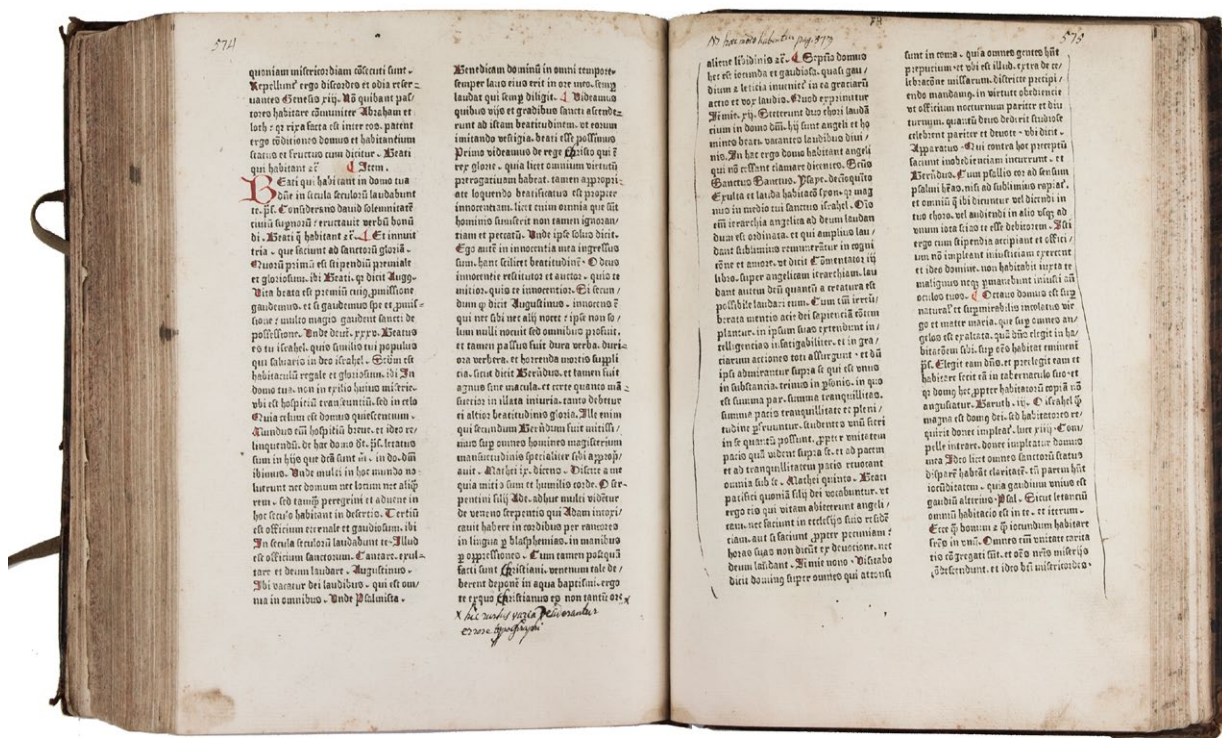 574
quoniam misericordiam cōsecuti sunt.
Repellunt̄ ergo discordes et odia reser-
uantes Genesis xiij. Nō quibant pas/
tores habitare cōmuniter Abraham et
loth. qr rixa facta est inter eos. patent
ergo cōditiones domus et habitantium
status et fructus cum dicitur. Beati
qui habitant zc̄ Item.
Beati qui habitant in domo tua
dn̄e in secula seculorū laudabunt
te. ps̄. Considerans dauid solemnitatē
ciuiū supnorū eructauit verbū bonū
di. Beati q̄ habitant zc̄. Et innuit
tria. que faciunt ad sanctorū gloriā.
Quorū primū est stipendiū premiale
et gloriosum. ibi Beati. qr dicit Augꝰ.
Vita beata est premiū cuiꝰ pmissione
gaudemus. et si gaudemus spe et pmis=
sione multo magis gaudent sancti de
possessione. Vnde deut. xxxv. Beatus
es tu israhel. quis similis tui populus
qui saluaris in deo israhel. Scdm est
habitaculū regale et gloriosum. ibi In
domo tua. non in exilio huius miserie.
vbi est hospitiū transeuntiū. sed in celo
Quia celum est domus quiescentium.
Mundus em̄ hospitiū breue. et ideo re-
linquendū. de hac domo dt̄. ps̄. letatus
sum in hijs que dcā sunt m̄. in do. dm̄
ibimus. Vnde multi in hoc mundo no-
luerunt nec domum nec locum nec aliq̄
rem. sed tamq̄ peregrini et aduene in
hoc seculo habitant in desertis. Tertiū
est officium eternale et gaudiosum. ibi
In secula seculorū laudabunt te. Illud
est officium sanctorum. Cantare. exul-
tare et deum laudare. Augustinus.
Ibi vacatur dei laudibus. qui est om/
nia in omnibus. Vnde Psalmista.
Benedicam dominū in omni tempore.
semper laus eius erit in ore meo. semp
laudat qui semp diligit. Videamus
quibus vijs et gradibus sancti ascende=
runt ad istam beatitudinem. vt eorum
imitando vestigia. beati esse possimus
Primo videamus de rege christo qui ē
rex glorie. quia licet omnium virtutū
prerogatiuam habeat. tamen appropri-
ate loquendo beatificatus est propter
innocentiam. licet enim omnia que sūt
hominis sumserit non tamen ignoran/
tiam et peccatū. Vnde ipse solus dicit.
Ego autē in innocentia mea ingressus
sum. hanc scilicet beatitudinē. O deus
innocentie restitutor et auctor. quis te
mitior. quis te innocentior. Si secun/
dum qr dicit Augustinus. innocens ē
qui nec sibi nec alij nocet ipse non so/
lum nulli nocuit sed omnibus profuit.
et tamen passus fuit dura verba. duri-
ora verbera. et horrenda mortis suppli
cia. sicut dicit Bern̄dus. et tamen fuit
agnus sine macula. et certe quanto mā=
suetior in illata iniuria. tanto debetur
ei altior beatitudinis gloria. Ille enim
qui secundum Bern̄drum fuit mitissi/
mus sup omnes homines magisterium
mansuetudinis specialiter sibi appropi/
auit. Mathei ix. dicens. Discite a me
quia mitis sum et humilis corde. O ser-
pentini filij Ade. adhuc multi vidētur
de veneno serpentis qui Adam intoxi/
cauit habere in cordibus per rancores
in lingua p blasphemias. in manibus
p oppressiones. Cum tamen postquā
facti sunt christiani. venenum tale de/
berent deponē in aqua baptismi. ergo
te ex quo christianus es non tantū ore x
x hic rursus varia desiderantur
errore typographi
NB haec retro habentur pag. 573
575
aliene libidinis zc̄. Septīs domus
hec est iocunda et gaudiosa. quasi gau/
dium et leticia inuenietr̄ in ea graciarū
actio et vox laudis. Quod exprimitur
Neemie. xij. Steterunt duo chori laudā
cium in domo dm̄. hij sunt angeli et ho
mines beati. vacantes laudibus diui/
nis. In hac ergo domo habitant angeli
qui nō cessant clamare dicentes. Scūs
Sanctus Sanctus. Ysaye. duodecimo
Exulta et lauda habitacō syon. qr mag
nus in medio tui sanctus israhel. Oīs
em̄ ierarchia angelica ad deum laudan
dum est ordinata. et qui amplius lau/
dant sublimius remunerātur in cogni
cōne et amore. vt dicit Cōmentator iij
libro. super angelicam ierarchiam. lau
dant autem deū quantū a creatura est
possibile laudari eum. Cum em̄ irreū/
brata mentis acie dei sapienciā cōtem
plantur. in ipsum suas extendunt in/
telligencias infatigabiliter. et in gra/
ciarum actiones toti assurgunt. et dū
ipsū admirantur supra se qui est vnus
in substancia. trinus in psonis. in quo
est summa pax. summa tranquillitas.
summa pacis tranquillitate et pleni/
tudine pfruuntur. studentes vnū fieri
in se quantū possunt. ppter vnitatem
pacis quā vident supra se. et ad pacem
et ad tranquillitatem pacis reuocant
omnia sub se. Mathei quinto. Beati
pacifici quoniā filij dei vocabuntur. et
ergo tis qui vitam abiterunt angeli/
cam. nec faciunt in ecclesijs suis residē
ciam. aut si faciunt ppter pecuniam
horas suas non dicūt ex deuocione. nec
deum laudant. Neemie nono. Visitabo
dicit dominꝰ super omnes qui attonsi
sunt in coma. quia omnes gentes hn̄t
prepucium. et vbi est illud. extra de ce/
lebracōne missarum. districte precipi/
endo mandamꝰ. in virtute obediencie
vt officium nocturnum pariter et diu
turnum. quantū deus dederit studiose
celebrent pariter et deuote. vbi dicit.
Apparatus. Qui contra hoc preceptū
faciunt inobedienciam incurrunt. et
Bern̄dus. Cum psallis cor ad sensum
psalmi hr̄as. nisi ad sublimius rapiaꝭ.
et omniū q̄ ibi dicuntur vel dicendi in
tuo choro. vel audiendi in alio vsqꝫ ad
vnum iota scias te esse debitorem. Isti
ergo cum stipendia accipiant et offici/
um nō impleant iniusticiam exercent
et ideo domine. non habitabit iuxta te
malignus neqꝫ pmanebunt iniusti añ
oculos tuos. Octaua domus est sup
natural et supmirabilis incolatus vir
go et mater maria. que sup omnes an/
gelos est exaltata. quā dn̄s elegit in ha/
bitacōem sibi. sup oēs habitat eminent
ps̄. Elegit eam dn̄s. et preelegit eam et
habitare fecit eā in tabernaculo suo. et
qr domꝰ hec ppter habitatorū copiā nō
angustiatur. Baruth. iij. O israhel q̄
magna est domꝰ dei. sed habitatores re/
quirit donec impleaꝭ. luce xiiij. Com/
pelle intrare. donec impleatur domus
mea Ideo licet omnes sanctorū status
disparē habeāt claritatē. tn̄ parem hn̄t
iocūditatem. quia gaudium vnius est
gaudiū alterius. Psal. Sicut letanciū
omniū habitacio est in te. et iterum.
Ecce q̄ bonum et q̄ iocundum habitare
frēs in vnū. Omnes em̄ vnitate carita
tis cōgregati sūt. et oēs nr̄is miserijs
cōdescendunt. et ideo bn̄ misericordes.